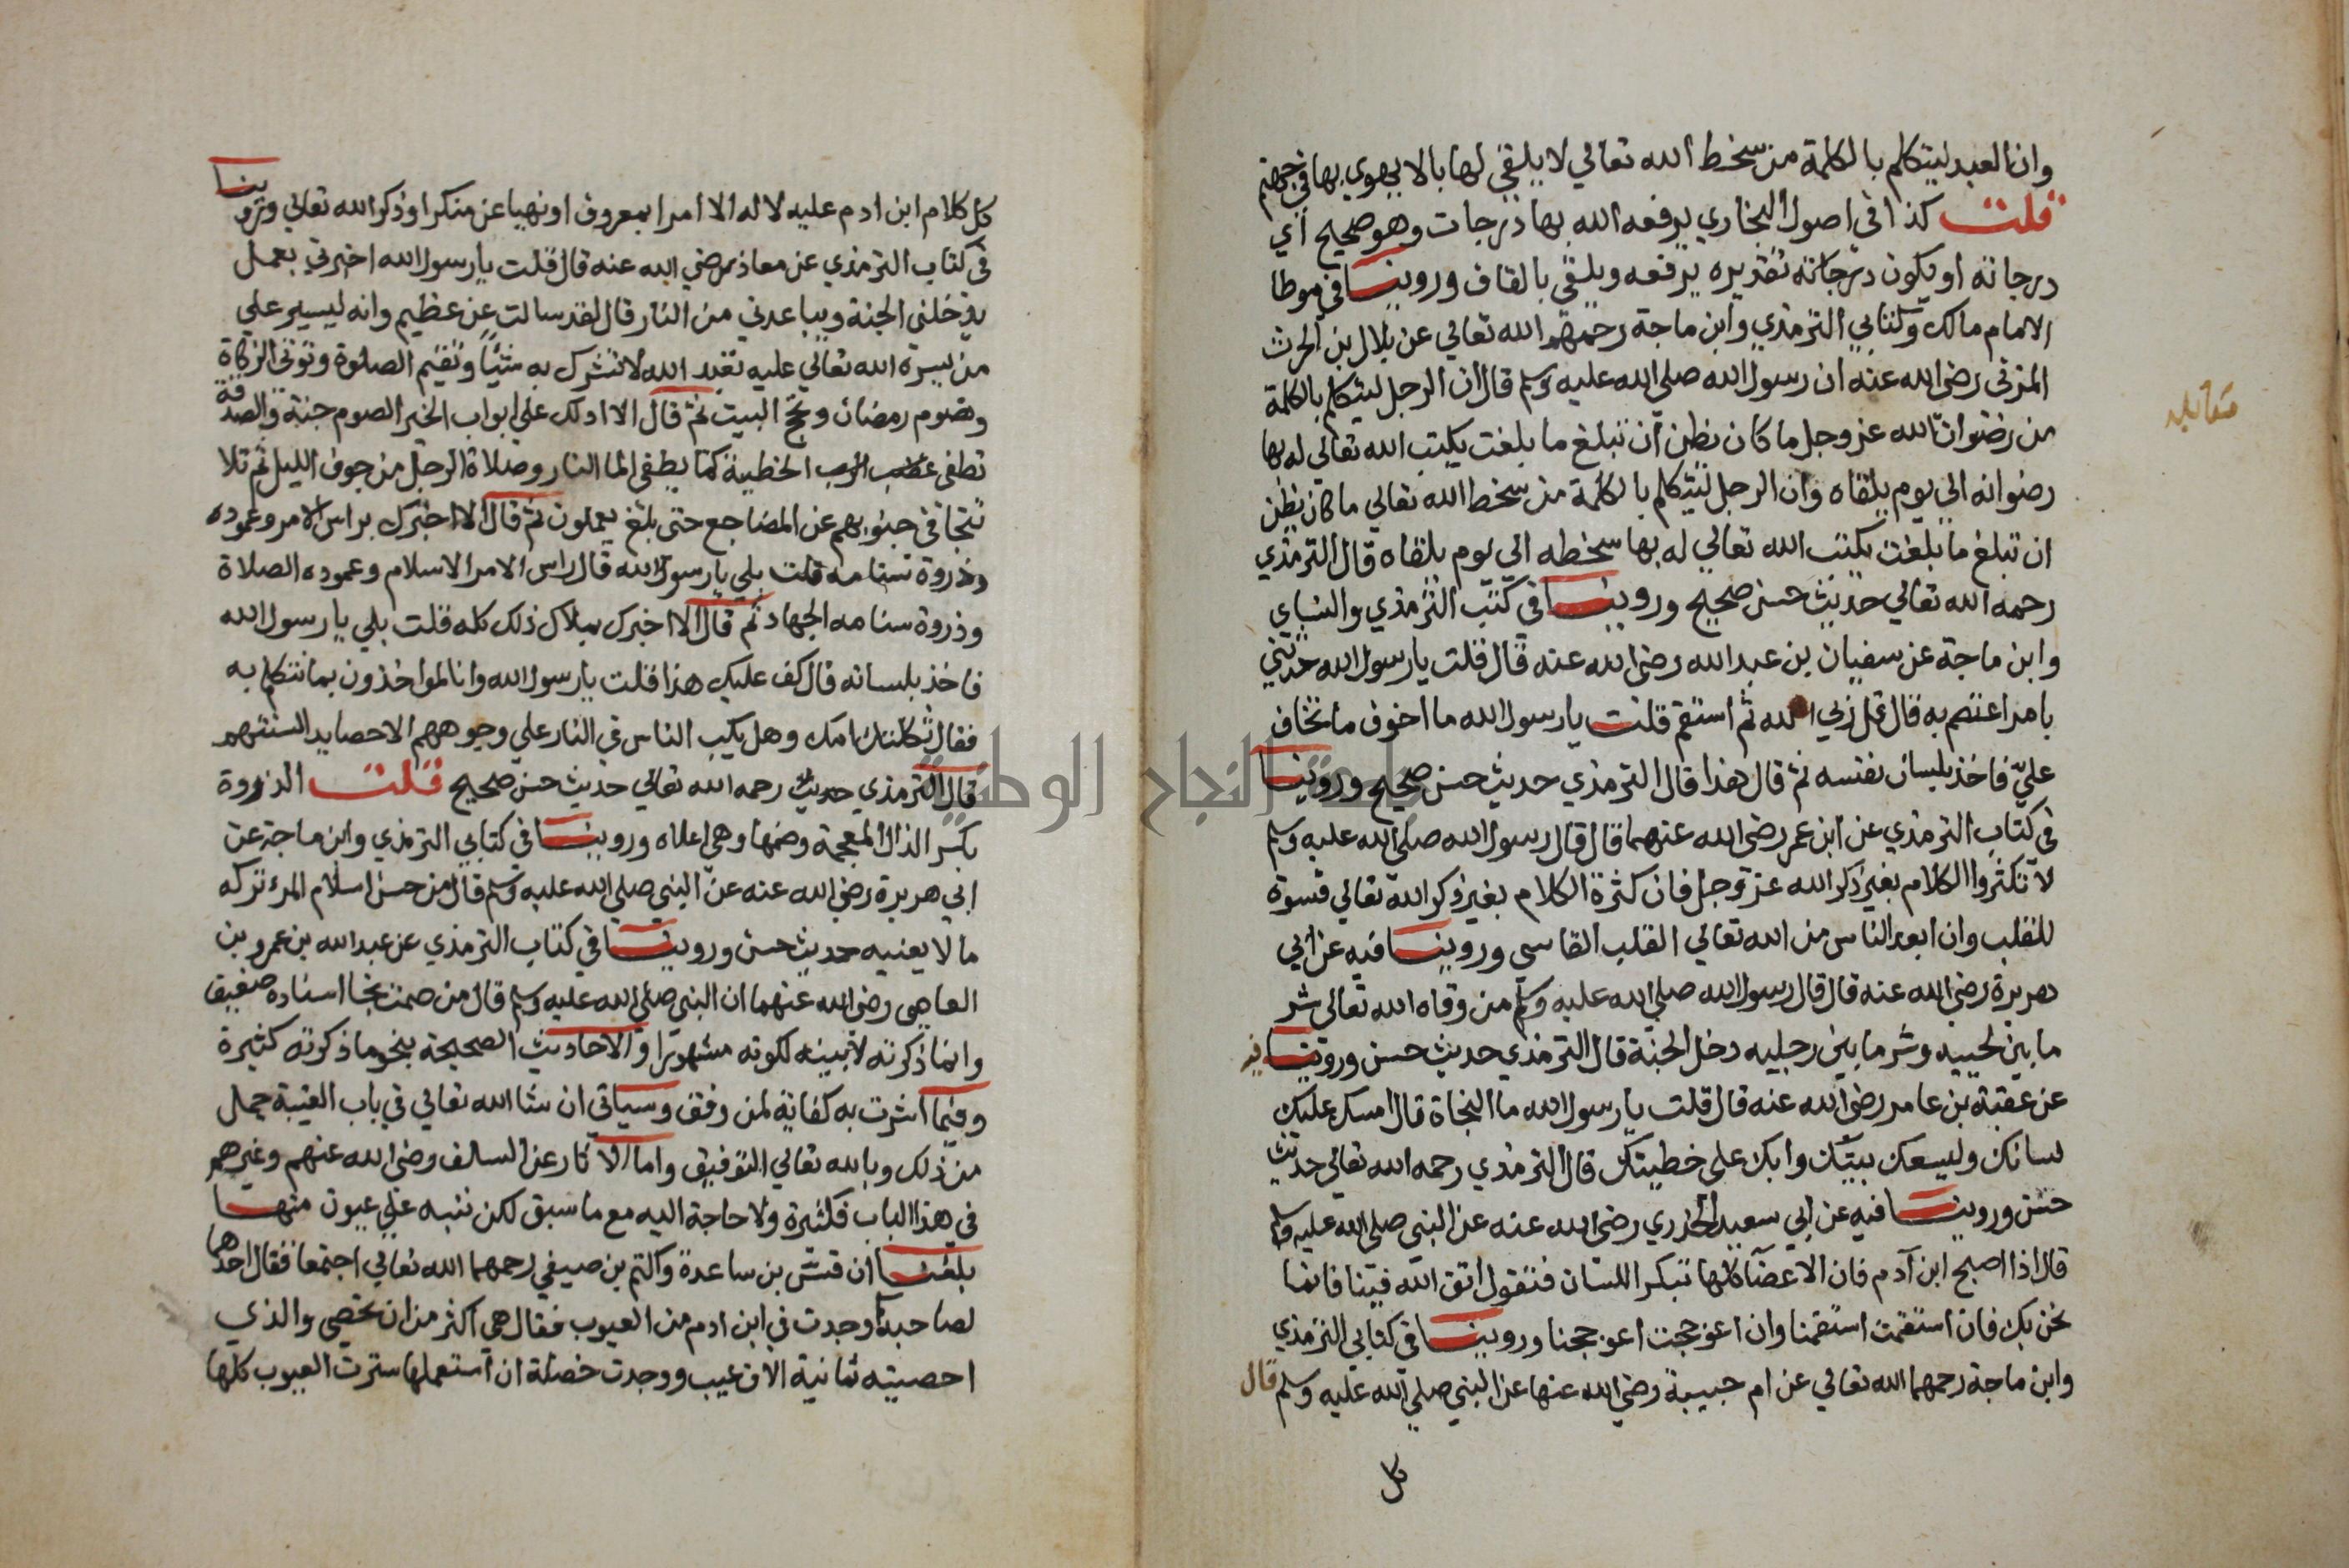 وان العبد ليتكلم بالكلمة من سخط الله تعالي لا يلقي لها بالا يهوي بها في جهنم
قلت كذا في اصول البخاري يرفعه الله بها درجات وهو صحيح اي
درجاته او يكون درجاته تقديره يرفعه ويلقي بالقاف وروينا في موطا
الامام مالك وكتابي الترمذي وابن ماجة رحمهم الله تعالي عن بلال بن الحرث
المزني رضي الله عنه ان رسول الله صلي الله عليه وسلم قال ان الرجل ليتكلم بالكلمة
من رضوان الله عز وجل ما كان يظن أن تبلغ ما بلغت يكتب الله تعالي له بها
رضوانه الي يوم يلقاه وان الرجل ليتكلم بالكلمة من سخط الله تعالي ما كان يظن
ان تبلغ ما بلغت يكتب الله تعالي له بها سخطه الي يوم يلقاه قال الترمذي
رحمه الله تعالي حديث حسن صحيح وروينا في كتب الترمذي والنساي
وابن ماجة عن سفيان بن عبد الله رضي الله عنه قال قلت يا رسول الله حدثني
بامر اعتصم به قال قل ربي الله ثم استقم قلت يا رسول الله ما اخوف ما تخاف
عليّ فاخذ بلسان نفسه ثم قال هذا قال الترمذي حديث حسن صحيح وروينا
في كتاب الترمذي عن ابن عمر رضي الله عنهما قال قال رسول الله صلي الله عليه وسلم
لا تكثروا الكلام بغير ذكر الله عز وجل فان كثرة الكلام بغير ذكر الله تعالي قسوة
للقلب وان ابعد الناس من الله تعالي القلب القاسي وروينا فيه عن ابي
هريرة رضي الله عنه قال قال رسول الله صلي الله عليه وسلم من وقاه الله تعالي شر
ما بين لحييه وشر ما بين رجليه دخل الجنة قال الترمذي حديث حسن وروينا فيه
عن عقبة بن عامر رضي الله عنه قال قلت يا رسول الله ما النجاة قال امسك عليك
لسانك وليسعك بيتك وابك علي خطيتك قال الترمذي رحمه الله تعالي حديث
حسن وروينا فيه عن ابي سعيد الخدري رضي الله عنه عن النبي صلي الله عليه وسلم
قال اذا اصبح ابن آدم فان الاعضآ كلها تبكر اللسان فتقول اتق الله فينا فانما
نحن بك فان استقمت استقمنا وان اعوججت اعوججنا وروينا في كتابي الترمذي
وابن ماجة رحمهما الله تعالي عن ام حبيبة رضي الله عنها عن النبي صلي الله عليه وسلم قال
كل
كل كلام ابن ادم عليه لا له الا امرا بمعروف او نهيا عن منكر او ذكر الله تعالي وروينا
في كتاب الترمذي عن معاذ رضي الله عنه قال قلت يا رسول الله اخبرني بعمل
يدخلني الجنة ويباعدني من النار قال لقد سالت عن عظيم وانه ليسير علي
من يسره الله تعالي عليه تعبد الله لا تشرك به شيًا وتقيم الصلوة وتوتي الزكاة
وتصوم رمضان وتحج البيت ثم قال الا ادلك علي ابواب الخير الصوم جنة والصدقة
تطفي غضب الرب الخطية كما يطفي الما النار وصلاة الرجل من جوف الليل ثم تلا
تتجافي جنوبهم عن المضاجع حتي بلغ يعملون ثم قال الا اخبرك براس الامر وعموده
وذروة سنامه قلت بلي يا رسول الله قال راس الامر الاسلام وعموده الصلاة
وذروة سنامه الجهاد ثم قال الا اخبرك بملاك ذلك كله قلت بلي يا رسول الله
فاخذ بلسانه قال كف عليك هذا فقلت يا رسول الله وانا لمواخذون بما نتكلم به
فقال ثكلتك امك وهل يكب الناس في النار علي وجوههم الا حصايد السنتهم
قال الترمذي حديث رحمه الله تعالي حديث حسن صحيح قلت الذروة
بكسر الذال المعجمة وضمها وهي اعلاه وروينا في كتابي الترمذي وابن ماجة عن
ابي هريرة رضي الله عنه عن النبي صلي الله عليه وسلم قال من حسن اسلام المرء تركه
ما لا يعنيه حديث حسن وروينا في كتاب الترمذي عن عبد الله بن عمرو بن
العاصي رضي الله عنهما ان النبي صلي الله عليه وسلم قال من صمت نجا اسناده ضعيف
وانما ذكرته لابينه لكونه مشهورًا والاحاديث الصحيحة بنحو ما ذكرته كثيرة
وفيما اشرت به كفاية لمن وفق وسياتي ان شا الله تعالي في باب الغيبة جمل
من ذلك وبالله تعالي التوفيق واما الاثار عن السالف رضي الله عنهم وغيرهم
في هذا الباب فكثيرة ولا حاجة اليه مع ما سبق لكن ننبه علي عيون منها
بلغنا ان قس بن ساعدة واكثم بن صيفي رحمهما الله تعالي اجتمعا فقال احدهما
لصاحبه وجدت في ابن ادم من العيوب فقال هي اكثر من ان تحصي والذي
احصيته ثمانية الاف عيب ووجدت خصلة ان استعملها سترت العيوب كلها
جامعة النجاح الوطنية